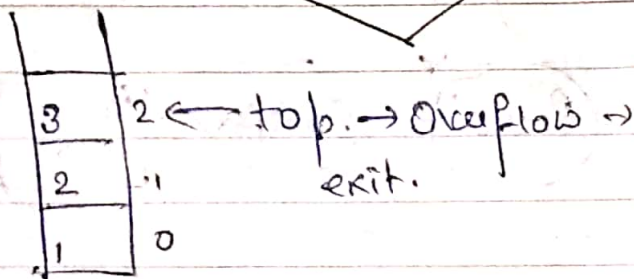 3 2 ← top. → Overflow →
2 1 exit.
1 0